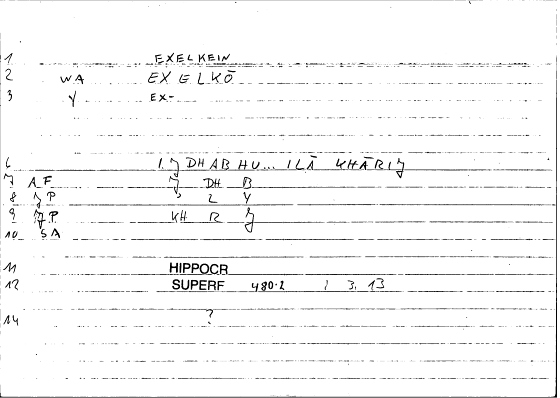 1 EXELKEIN
2 WA EXELKŌ
3 Y EX-
6 1. J DHABHU... ILĀ KHĀRIJ
7 A F J DH B
8 J P ' L Y
9 J P. KH R J
10 SA
11 HIPPOCR
12 SUPERF 480.2 1 3. 13
14 ?